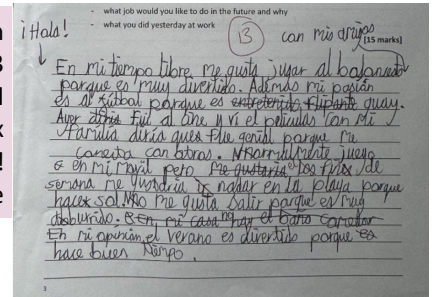 - what job would you like to do in the future and why
- what you did yesterday at work
13
[15 marks]
¡Hola!
con mis amigos
En mi tiempo libre me gusta jugar al baloncesto
porque es muy divertido. Además mi pasión
es el fútbol porque es entretenido, flipante guay.
Ayer fui al cine y vi el películas con mi
familia diría que fue genial porque me
conecta con otros. Normalmente juego
en mi móvil pero me gustaría los fines de
semana me gustaría nadar en la playa porque
hace sol. No me gusta salir porque es muy
aburrido. en mi casa hay el baño comedor
En mi opinión el verano es divertido porque es
hace buen tiempo.
3